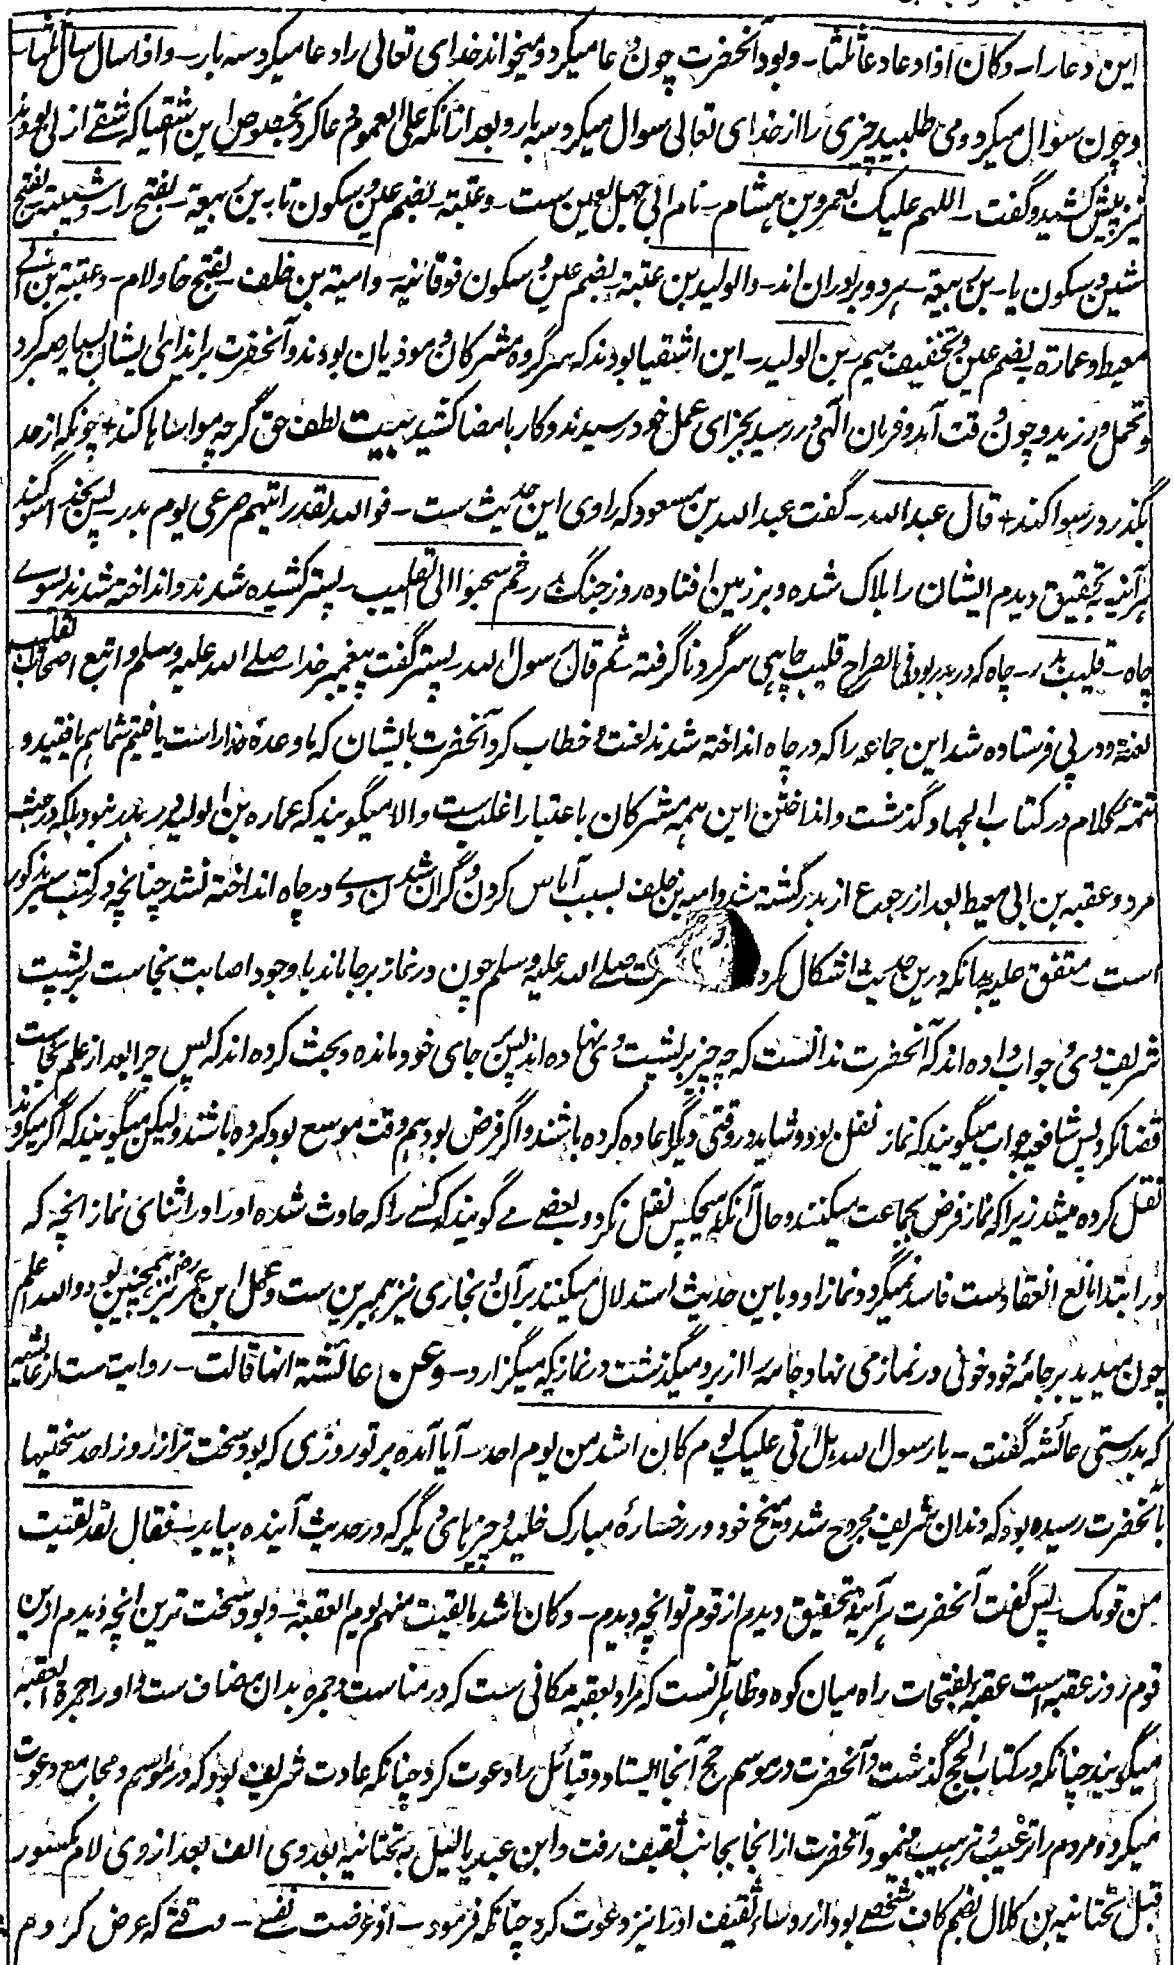 این دعا را۔ وکان اذا دعا دعا ثلثا۔ وبود آنحضرت چون دعا میکرد و میخواند خدای تعالی را دعا میکرد سه بار۔ واذا سال سال ثلثا۔
وچون سوال میکرد و می طلبید چیزی را از خدای تعالی سوال میکرد سه بار و بعد ازانکه علی العموم دعا کرد بخصوص این شقیا که شقے از لی بودند
نیز پیش کشید و گفت۔ اللهم علیک بعمرو بن هشام۔ نام ابی جهل لعین ست۔ وعتبة۔ بضم عین و سکون تا۔ بن ربیعة۔ بفتح را۔ وشیبة۔ بفتح
شین و سکون یا۔ بن ربیعة۔ هر دو برادران اند۔ والولید بن عتبة۔ بضم عین و سکون فوقانیه۔ وامیة بن خلف۔ بفتح خا و لام۔ وعقبة بن ابی
معیط وعمارة۔ بضم عین و تخفیف میم۔ بن الولید۔ این اشقیا بودند که سرگروه مشرکان و موذیان بودند و آنحضرت بر ایذای ایشان بسیار صبر کرد
و تحمل ورزید و چون وقت آمد و فرمان الهی در رسید بجزای عمل خود رسیدند و کار بامضا کشید بیت لطف حق گرچه مواساها کند + چونکه از حد
بگذرد رسوا کند + قال عبد الله۔ گفت عبد الله بن مسعود که راوی این حدیث ست۔ فوالله لقد رایتهم صرعی یوم بدر۔ پس بخدا سوگند
هر آئینه بتحقیق دیدم ایشان را هلاک شده و بر زمین افتاده روز جنگ بدر۔ ثم سحبوا الی القلیب۔ پستر کشیده شدند و انداخته شدند بسوے
چاه۔ قلیب بدر۔ چاه که در بدر بود فی الصراح قلیب چاهی سر گرد ناگرفته ثم قال رسول الله۔ پستر گفت پیغمبر خدا صلے الله علیه وسلم واتبع اصحاب القلیب
لعنة و در پی فرستاده شد این جماعه را که در چاه انداخته شدند لعنت و خطاب کرد آنحضرت بایشان که ما وعدهٔ خدا راست یافتیم شما هم یافتید و
تتمهٔ کلام در کتاب الجهاد گذشت و انداختن این همه مشرکان باعتبار اغلب ست والا میگویند که عماره بن الولید در بدر نبود بلکه در حبشه
مرد و عقبه بن ابی معیط بعد از رجوع از بدر کشته شد و امیه بن خلف بسبب آماس کردن و گران شدن وے در چاه انداخته نشد چنانچه در کتب سیر مذکور
است۔ متفق علیه بدانکه درین حدیث اشکال کرده صلے الله علیه وسلم چون در نماز بر جا ماند با وجود اصابت نجاست بر پشت
شریف وی و جواب داده اند که آنحضرت ندانست که چه چیز بر پشت وی نهاده اند پس بر جای خود مانده و بحث کرده اند که پس چرا بعد از علم نجاست
قضا نکرد پس شافعیه جواب میگویند که نماز نفل بود و شاید در وقتی دیگر اعاده کرده باشند و اگر فرض بود هم وقت موسع بود کرده باشند ولیکن میگویند که اگر میکردند
نقل کرده میشد زیرا که نماز فرض بجماعت میکنند و حال آنکه هیچکس نقل نکرد و بعضے مے گویند که کسے را که حادث شده او را در اثنای نماز انچه که
در ابتدا مانع انعقادست فاسد نمیگردد نماز او و باین حدیث استدلال میکنند بر آن و بخاری نیز همبرین ست و عمل ابن عمر رض نیز همچنین بود والله اعلم
چون میدید بر جامهٔ خود خونی در نماز می نهاد جامه را از بر و میگذشت در نمازیکه میگزارد۔ وعن عائشة انها قالت۔ روایت ست از عائشه
که بدرستی عائشه گفت۔ یا رسول الله هل اتی علیک یوم کان اشد من یوم احد۔ آیا آمده بر تو روزی که بود سخت تر از روز احد سختیها
بآنحضرت رسیده بود که دندان شریف مجروح شد و میخ خود در رخسارهٔ مبارک خلید و چیزهای دیگر که در حدیث آینده بیاید۔ فقال لقد لقیت
من قومک۔ پس گفت آنحضرت هر آینه بتحقیق دیدم از قوم تو انچه دیدم۔ وکان اشد ما لقیت منهم یوم العقبة۔ وبود سخت ترین انچه دیدم ازین
قوم روز عقبه است عقبه بفتحات راه میان کوه و ظاهر آنست که مراد بعقبه مکانی ست که در مناست و جمره بدان مضاف ست و او را جمرة العقبه
میگویند چنانکه در کتاب الحج گذشت و آنحضرت در موسم حج آنجا ایستاد و قبائل را دعوت کرد چنانکه عادت شریف بود که در مواسم و مجامع دعوت
میکرد و مردم را ترغیب و ترهیب مینمود آنحضرت از انجا بجانب ثقیف رفت و ابن عبد یالیل به تحتانیه بعد وی الف بعد از وی لام مکسور
قبل تحتانیه بن کلال بضم کاف شخصے بود از رؤساء ثقیف او را نیز دعوت کرد چنانکه فرمود۔ اذ عرضت نفسے۔ وقتے که عرض کردم